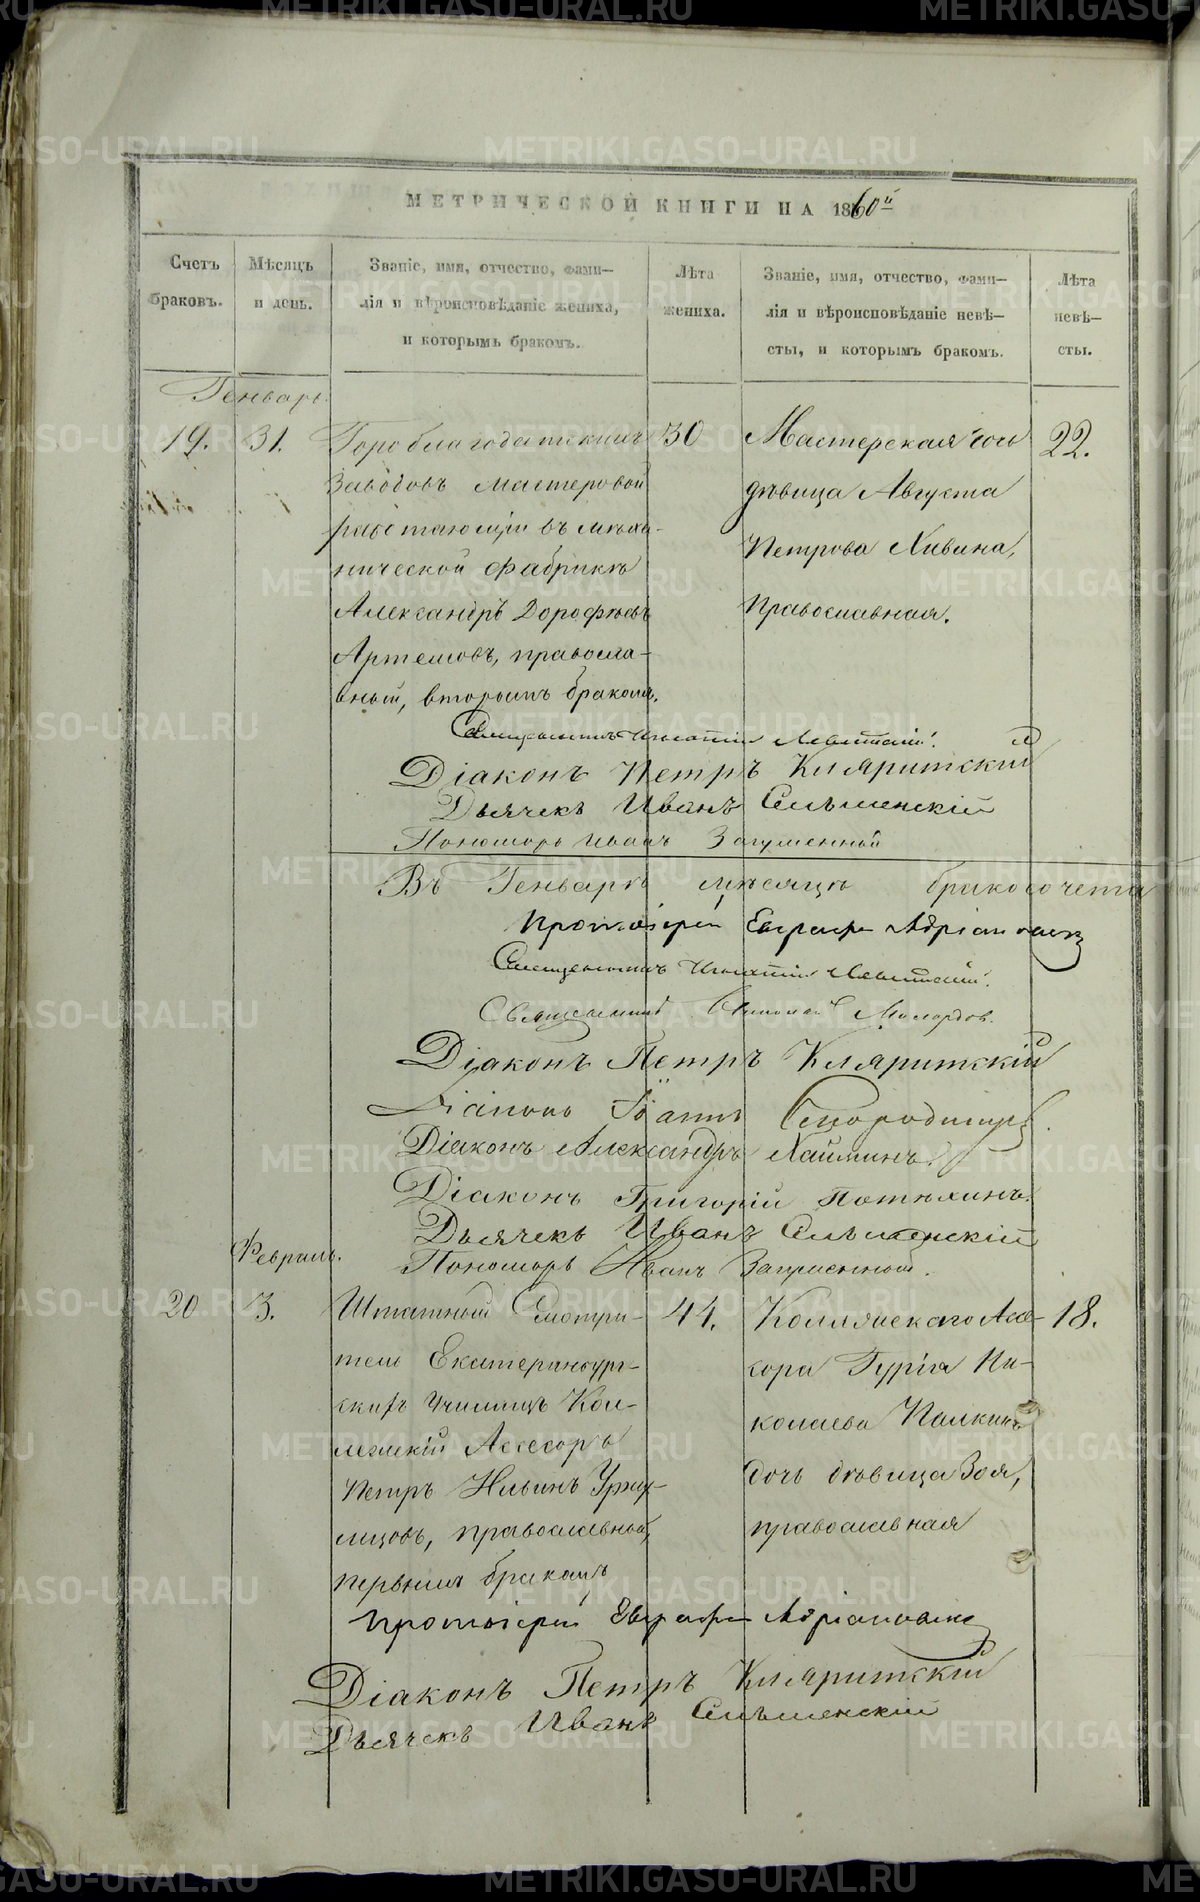 МЕТРИЧЕСКОЙ КНИГИ НА 1860й
Счетъ браковъ.
Мѣсяцъ и день.
Званіе, имя, отчество, фами-
лія и вѣроисповѣданіе жениха,
и которымъ бракомъ.
Лѣта жениха.
Званіе, имя, отчество, фами-
лія и вѣроисповѣданіе невѣ-
сты, и которымъ бракомъ.
Лѣта невѣ-
сты.
Генварь.
19. 31.
Гороблагодатскихъ
Заводовъ мастеровой
работающій въ меха-
нической фабрикѣ
Александръ Дорофѣевъ
Артемовъ, правосла-
вный, вторымъ бракомъ.
30
Мастерская дочь
дѣвица Августа
Петрова Хивина,
Православная.
22.
Священникъ Игнатій Левитскій.
Діаконъ Петръ Кляритскій
Дьячекъ Иванъ Сельменскій
Пономарь Иванъ Загуменный
Въ Генварѣ мѣсяцѣ бракосочета
Протоіерей Евграфъ Адріановскій
Священникъ Игнатій Левитскій.
Священникъ Николай Милордов.
Діаконъ Петръ Кляритскій
Діаконъ Іоаннъ
Діаконъ Александръ Хайминъ.
Діаконъ Григорій Потѣхинъ.
Дьячекъ Иванъ Сельменскій
Пономарь Иванъ Загуменный.
Февраль.
20 3.
Штатный Смотри-
тель Екатеринбург-
скихъ Училищъ Кол-
лежскій Ассесоръ
Петръ Ильинъ Уржу-
мцовъ, православный,
первымъ бракомъ
44.
Коллежскаго Ассе-
сора Гурія Ни-
колаева Палкина
дочь дѣвица Зоя,
православная
18.
Протоіерей Евграфъ Адріановскій
Діаконъ Петръ Кляритскій
Дьячекъ Иванъ Сельменскій
METRIKI.GASO-URAL.RU